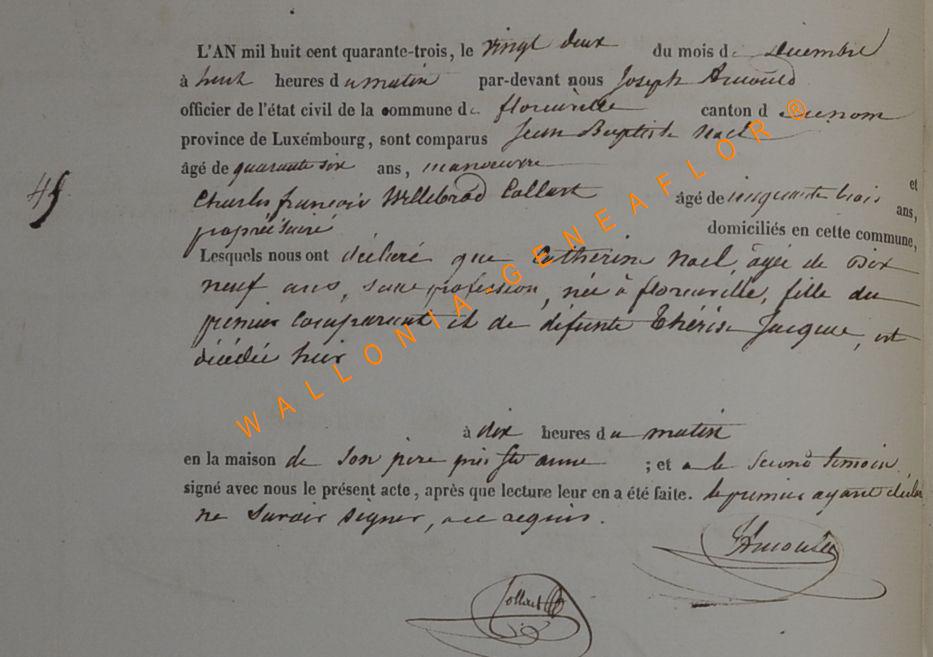 L'AN mil huit cent quarante-trois, le vingt deux du mois de decembre
à huit heures du matin par-devant nous Joseph Arnould
officier de l'état civil de la commune de florenville canton d
province de Luxémbourg, sont comparus Jean Baptiste Noel
âgé de quarante six ans, manoeuvre et
Charles françois Willebrod Collart âgé de cinquante trois ans,
propriétaire domiciliés en cette commune,
45
Lesquels nous ont déclaré que Catherine Noel, âgée de Dix
neuf ans, sans profession, née à florenville, fille du
premier Comparant et de défunte Thérèse Jacque, est
décédée hier
à dix heures du matin
en la maison de son père près Ste anne ; et a le second temoin
signé avec nous le présent acte, après que lecture leur en a été faite. le premier ayant déclaré
ne savoir signer, de ce requis.
Arnould
Collart
WALLONIA-GENEAFLOR®